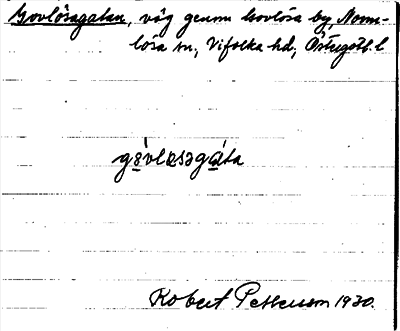 Govlösagatan, väg genom Govlösa by, Norm-
lösa sn, Vifolka hd, Östergötl. l
gə́vləsəgáta
Robert Petterson 1930.